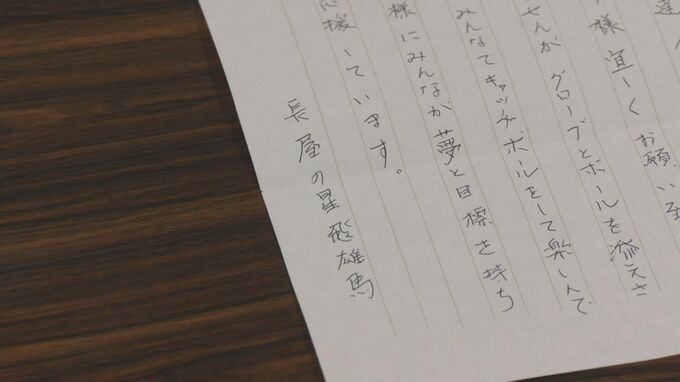 様宜しくお願い
せんがグローブとボールを添えさ
みんなでキャッチボールをして楽しんで
様にみんなが夢と目標を持ち
応援しています。
長屋の星飛雄馬